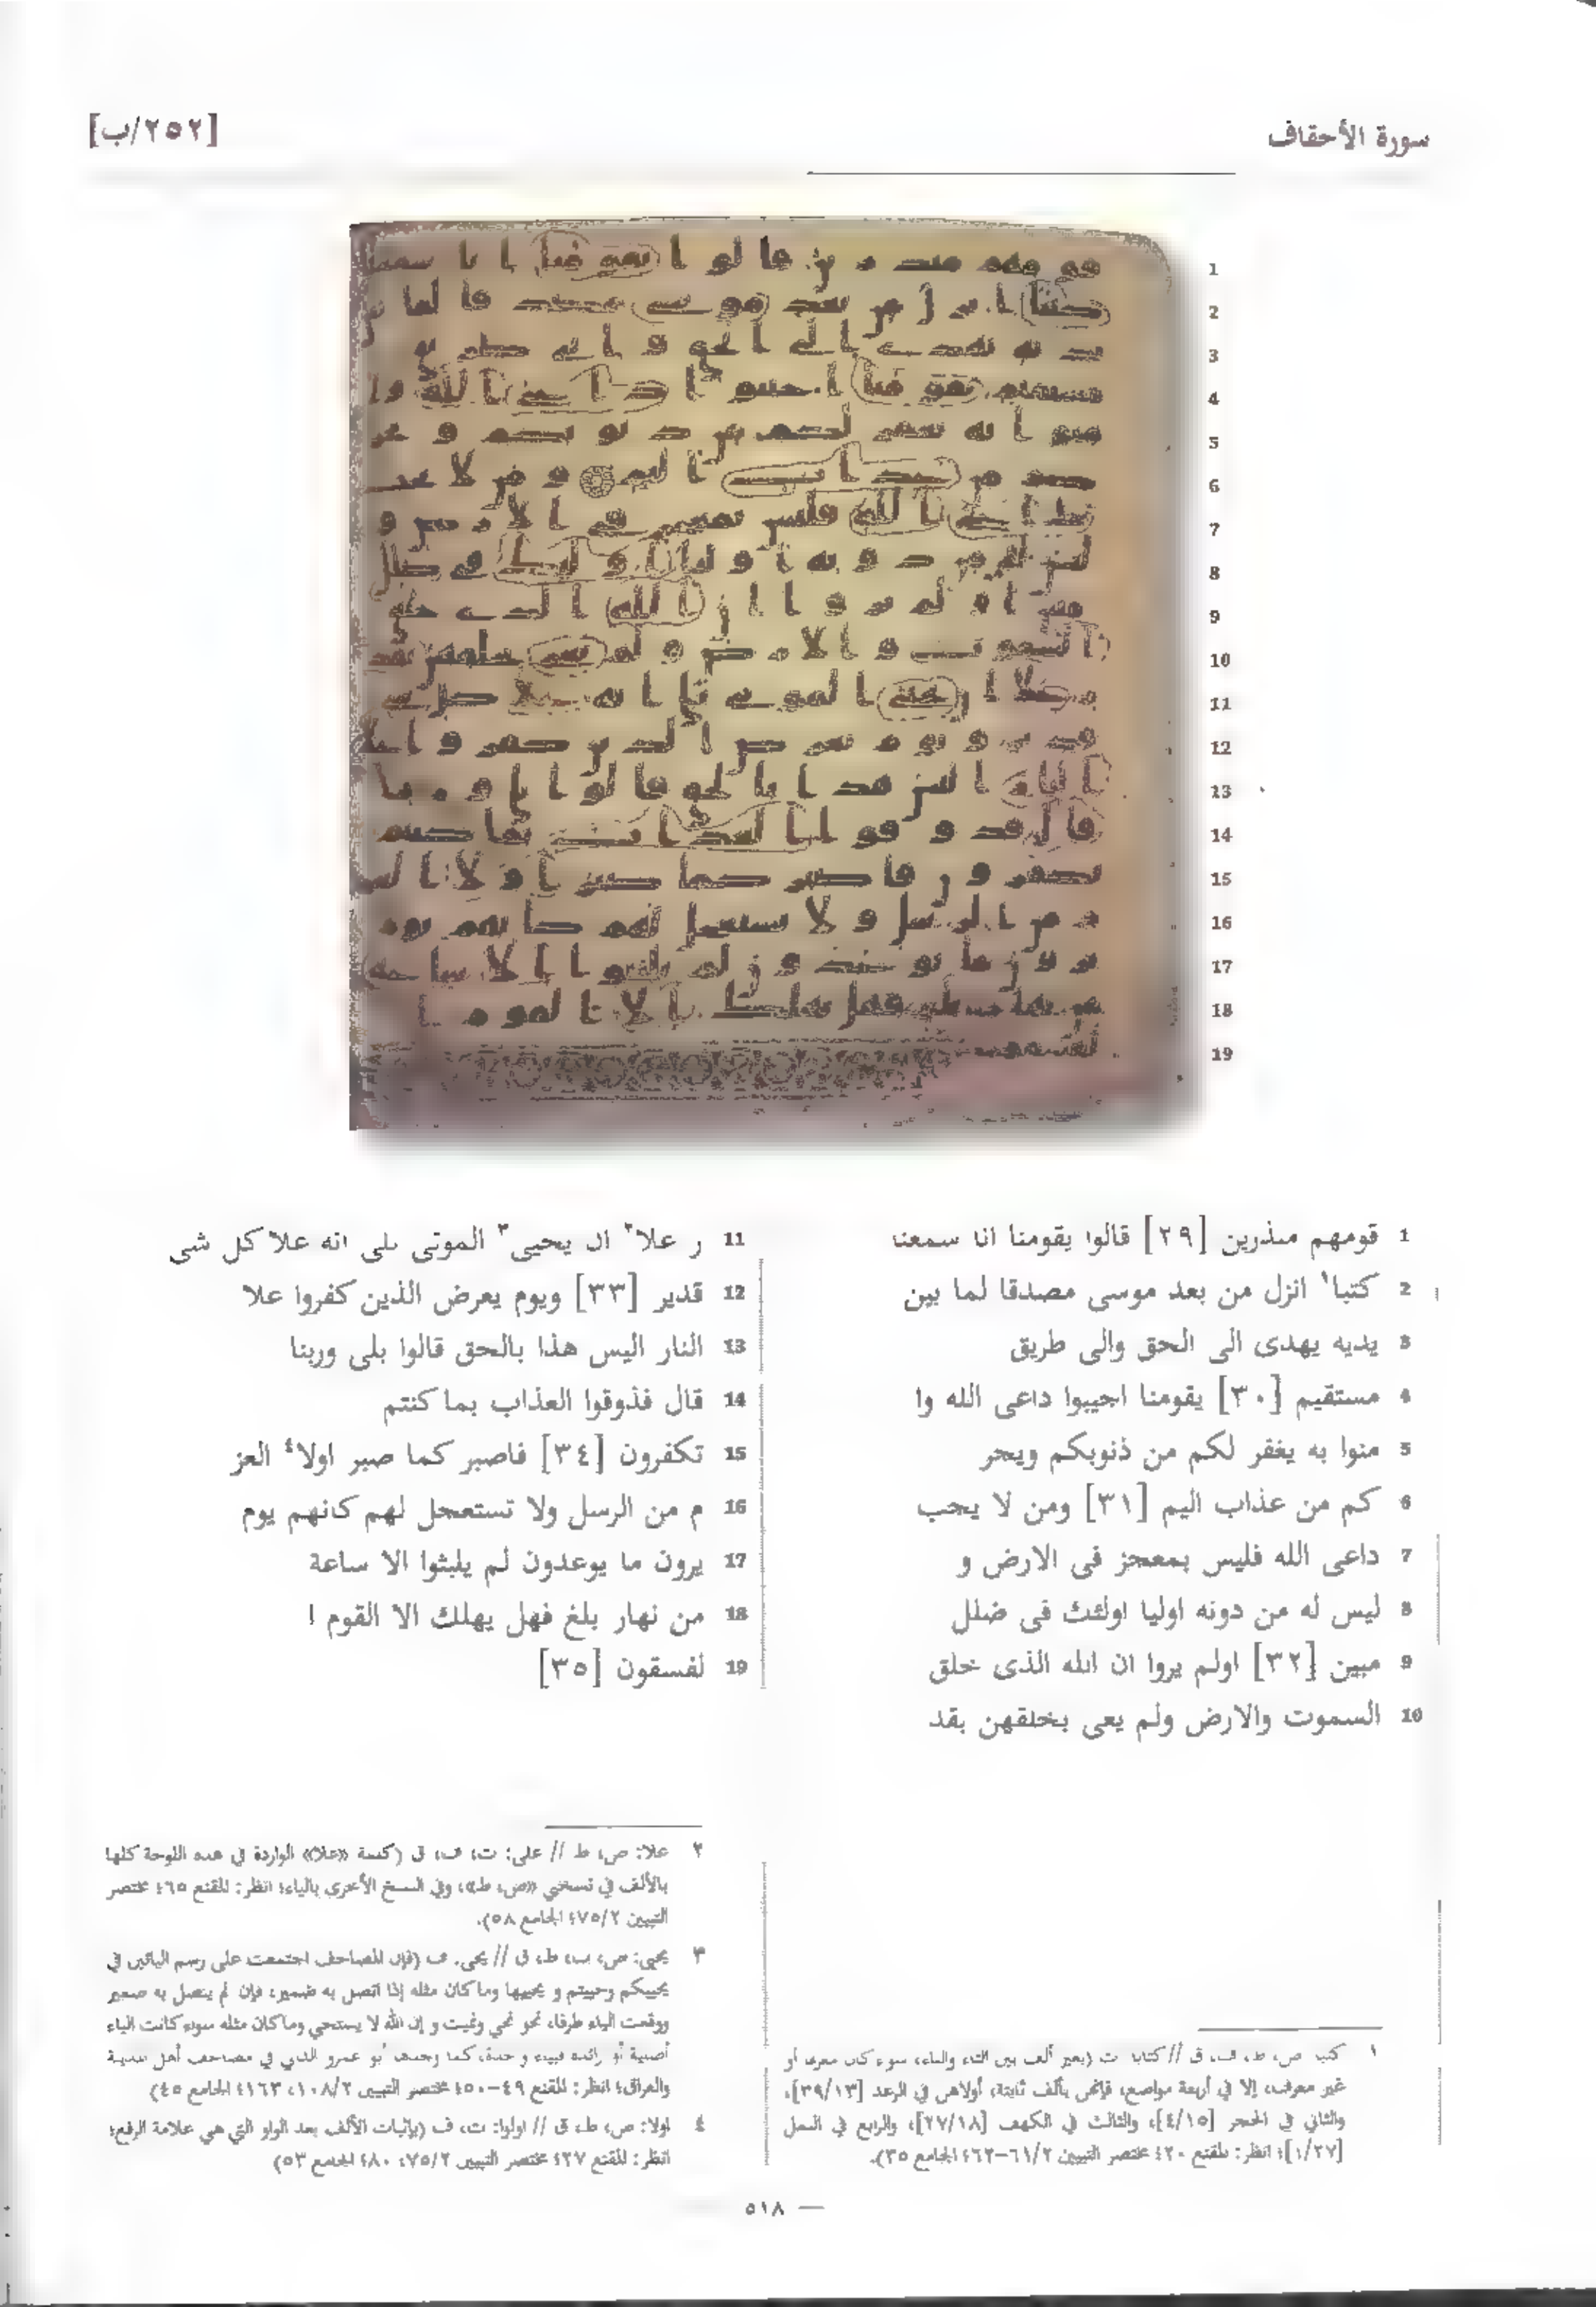 سورة الأحقاف
[٢٥٢/ب]
1
2
3
4
5
6
7
8
9
10
11
12
13
14
15
16
17
18
19
1 قومهم منذرين [٢٩] قالوا يقومنا انا سمعنا
2 كتبا١ انزل من بعد موسى مصدقا لما بين
3 يديه يهدى الى الحق والى طريق
4 مستقيم [٣٠] يقومنا اجيبوا داعى الله وا
5 منوا به يغفر لكم من ذنوبكم ويجر
6 كم من عذاب اليم [٣١] ومن لا يجب
7 داعى الله فليس بمعجز فى الارض و
8 ليس له من دونه اوليا اولئك فى ضلل
9 مبين [٣٢] اولم يروا ان الله الذى خلق
10 السموت والارض ولم يعى بخلقهن بقد
11 ر علا٢ ان يحيى٣ الموتى بلى انه علا كل شى
12 قدير [٣٣] ويوم يعرض الذين كفروا علا
13 النار اليس هذا بالحق قالوا بلى وربنا
14 قال فذوقوا العذاب بما كنتم
15 تكفرون [٣٤] فاصبر كما صبر اولا٤ العز
16 م من الرسل ولا تستعجل لهم كانهم يوم
17 يرون ما يوعدون لم يلبثوا الا ساعة
18 من نهار بلغ فهل يهلك الا القوم ا
19 لفسقون [٣٥]
١ كتب ص، ط، ف، ق // كتابا ت (بغير ألف بين التاء والباء، سواء كان معرفا أو
غير معرف، إلا في أربعة مواضع، فإنهن بألف ثابتة، أولاهن في الرعد [٣٩/١٣]،
والثاني في الحجر [٤/١٥]، والثالث في الكهف [٢٧/١٨]، والرابع في النمل
[١/٢٧]؛ انظر: المقنع ٢٠؛ مختصر التبيين ٦١/٢-٦٢؛ الجامع ٣٥).
٢ علا: ص، ط // على: ت، ف، ق (كلمة «علا» الواردة في هذه اللوحة كلها
بالألف في نسختي «ص، ط»، وفي النسخ الأخرى بالياء؛ انظر: المقنع ٦٥؛ مختصر
التبيين ٧٥/٢؛ الجامع ٥٨).
٣ يحيى: ص، ت، ط، ق // يحى. ف (فإن المصاحف اجتمعت على رسم اليائين في
يحييكم وحييتم و يحييها وما كان مثله إذا اتصل به ضمير، فإن لم يتصل به ضمير
ووقعت الياء طرفا، نحو نحي ونميت و إن الله لا يستحي وما كان مثله سواء كانت الياء
أصلية أو زائدة فبياء واحدة، كما وجدها أبو عمرو الداني في مصاحف أهل المدينة
والعراق؛ انظر: المقنع ٤٩-٥٠؛ مختصر التبيين ١٠٨/٢، ١٦٣؛ الجامع ٤٥)
٤ اولا: ص، ط، ق // اولوا: ت، ف (بإثبات الألف بعد الواو التي هي علامة الرفع؛
انظر: المقنع ٢٧؛ مختصر التبيين ٧٥/٢، ٨٠؛ الجامع ٥٣)
٥١٨ —